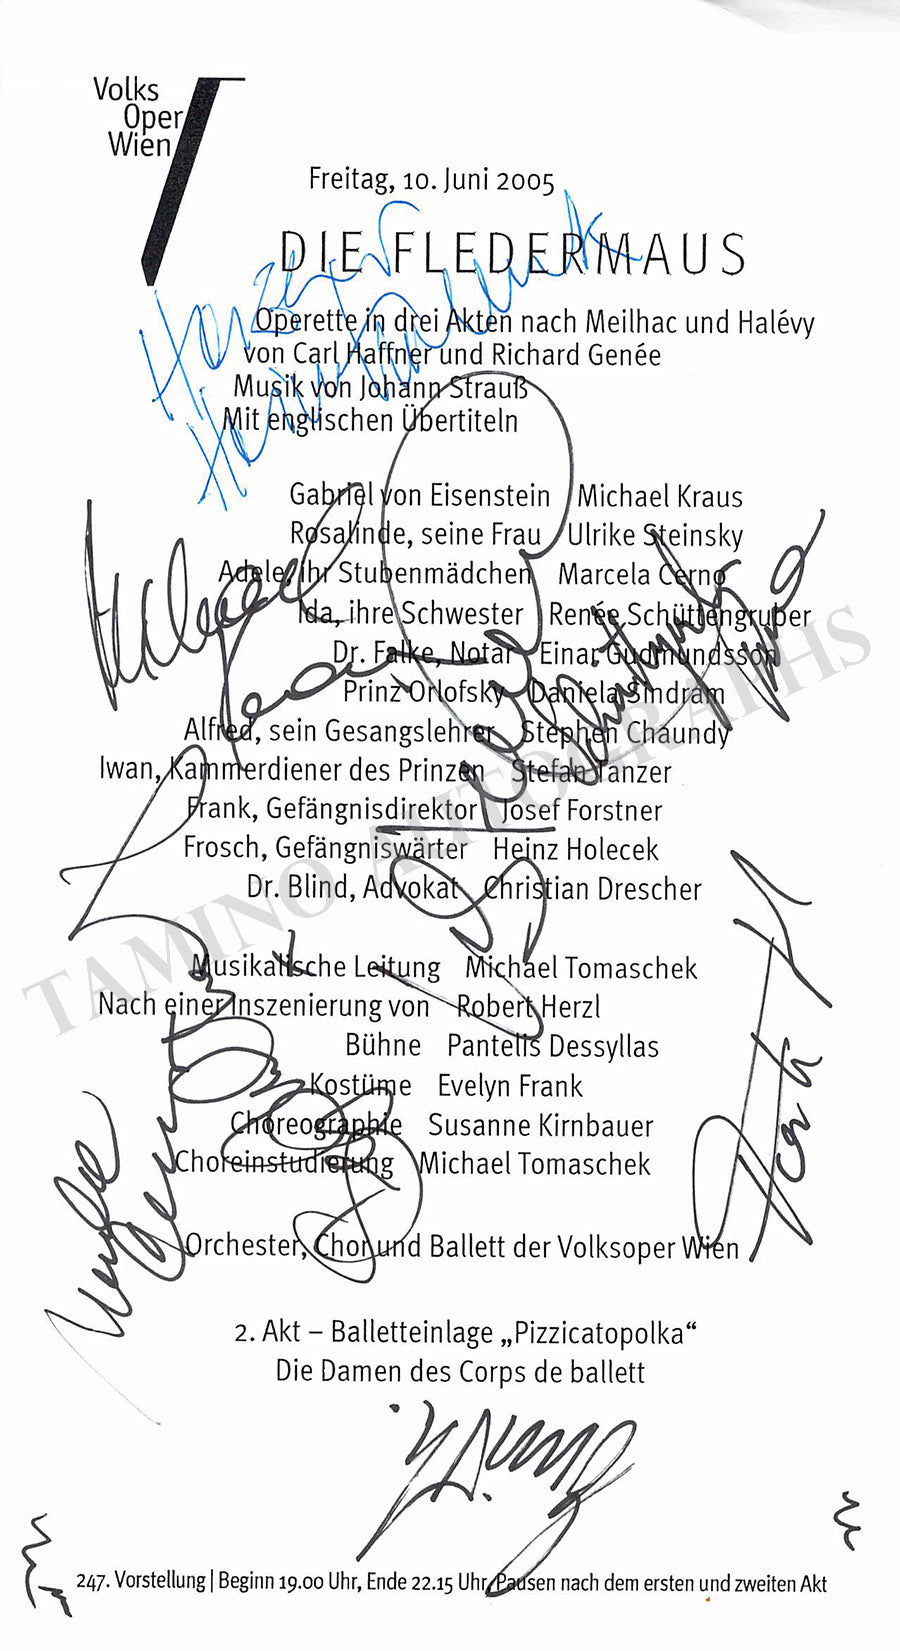 Volks
Oper
Wien
Freitag, 10. Juni 2005
DIE FLEDERMAUS
Operette in drei Akten nach Meilhac und Halévy
von Carl Haffner und Richard Genée
Musik von Johann Strauß
Mit englischen Übertiteln
Gabriel von Eisenstein Michael Kraus
Rosalinde, seine Frau Ulrike Steinsky
Adele, ihr Stubenmädchen Marcela Cerno
Ida, ihre Schwester Renée Schüttengruber
Dr. Falke, Notar Einar Gudmundsson
Prinz Orlofsky Daniela Sindram
Alfred, sein Gesangslehrer Stephen Chaundy
Iwan, Kammerdiener des Prinzen Stefan Tanzer
Frank, Gefängnisdirektor Josef Forstner
Frosch, Gefängniswärter Heinz Holecek
Dr. Blind, Advokat Christian Drescher
Musikalische Leitung Michael Tomaschek
Nach einer Inszenierung von Robert Herzl
Bühne Pantelis Dessyllas
Kostüme Evelyn Frank
Choreographie Susanne Kirnbauer
Choreinstudierung Michael Tomaschek
Orchester, Chor und Ballett der Volksoper Wien
2. Akt – Balletteinlage „Pizzicatopolka“
Die Damen des Corps de ballett
247. Vorstellung | Beginn 19.00 Uhr, Ende 22.15 Uhr, Pausen nach dem ersten und zweiten Akt
TAMINO AUTOGRAPHS